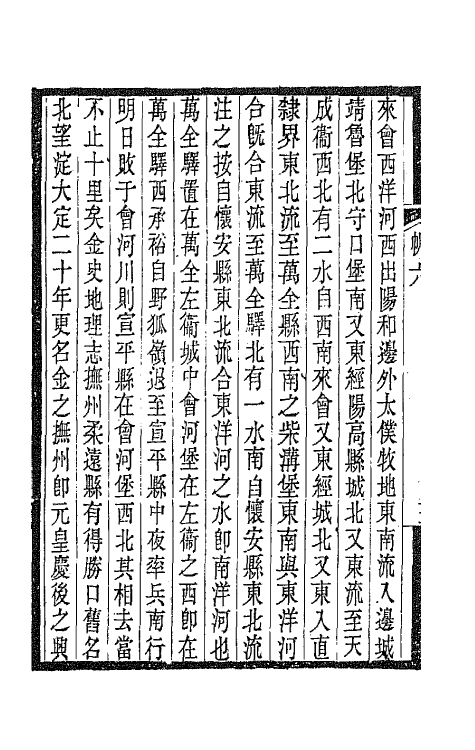 來會西洋河西出陽和邊外太僕牧地東南流入邊城
靖魯堡北守口堡南又東經陽高縣城北又東流至天
成衞西北有二水自西南來會又東經城北又東入直
隸界東北流至萬全縣西南之柴溝堡東南與東洋河
合旣合東流至萬全驛北有一水南自懷安縣東北流
注之按自懷安縣東北流合東洋河之水卽南洋河也
萬全驛置在萬全左衞城中會河堡在左衞之西卽在
萬全驛西承裕自野狐嶺退至宣平縣中夜率兵南行
明日敗于會河川則宣平縣在會河堡西北其相去當
不止十里矣金史地理志撫州柔遠縣有得勝口舊名
北望淀大定二十年更名金之撫州卽元皇慶後之興
帆六